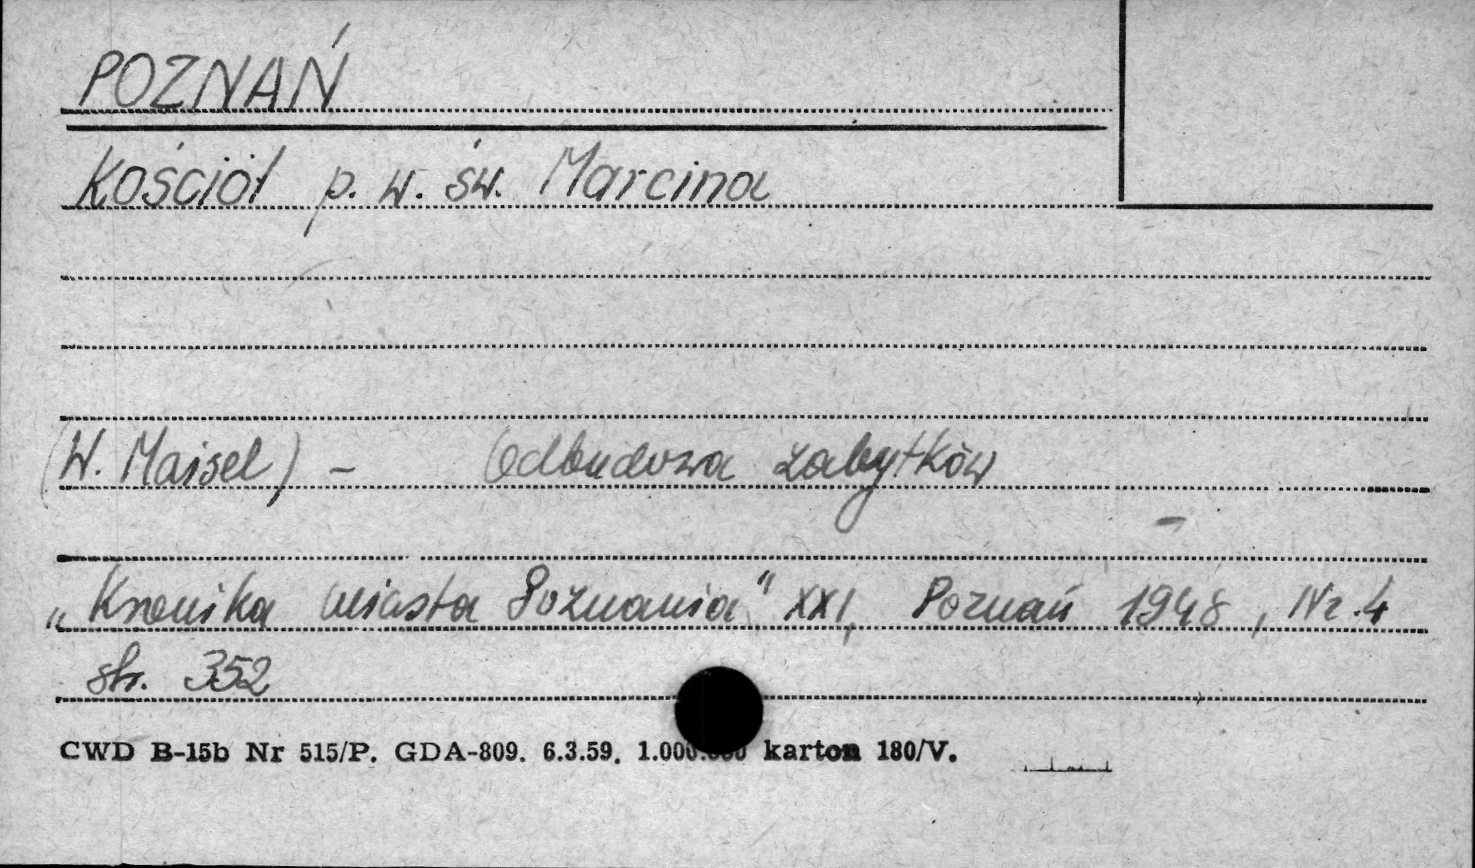 POZNAŃ
Kościół p.w. św. Marcina
(W. Maisel) – Odbudowa zabytków –
„Kronika Miasta Poznania" XXI, Poznań 1948, Nr. 4
str. 352
CWD B-15b Nr 515/P. GDA-809. 6.3.59. 1.000.000 karton 180/V.